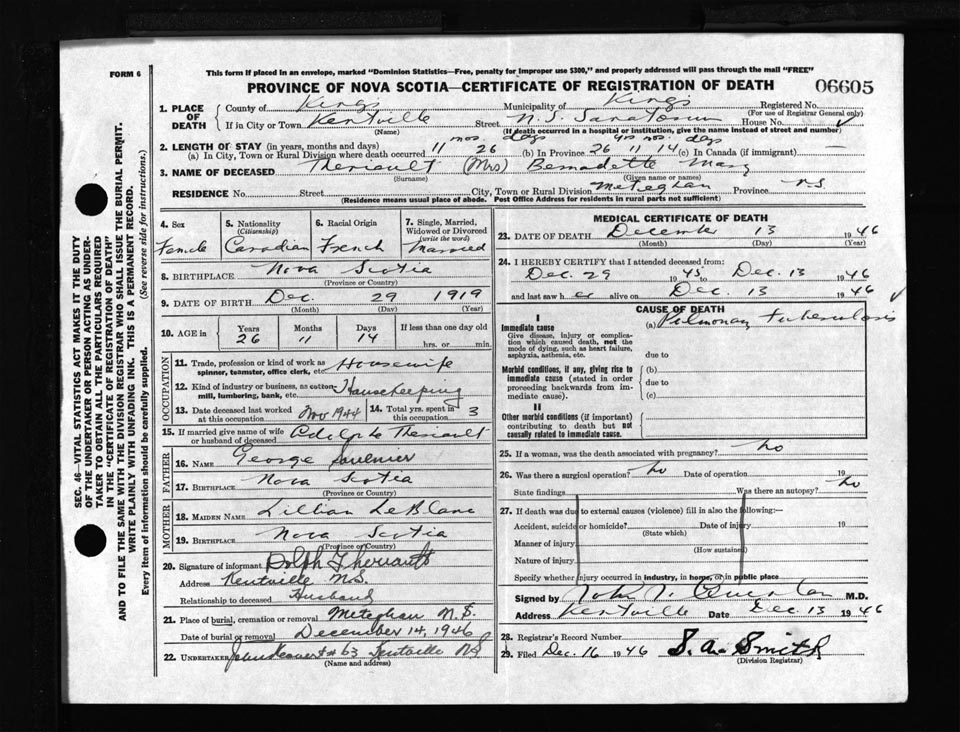 FORM 6
This form if placed in an envelope, marked "Dominion Statistics—Free, penalty for improper use $300," and properly addressed will pass through the mail "FREE"
PROVINCE OF NOVA SCOTIA—CERTIFICATE OF REGISTRATION OF DEATH
06605
SEC. 46—VITAL STATISTICS ACT MAKES IT THE DUTY
OF THE UNDERTAKER OR PERSON ACTING AS UNDER-
TAKER TO OBTAIN ALL THE PARTICULARS REQUIRED
IN THE "CERTIFICATE OF REGISTRATION OF DEATH"
AND TO FILE THE SAME WITH THE DIVISION REGISTRAR WHO SHALL ISSUE THE BURIAL PERMIT.
WRITE PLAINLY WITH UNFADING INK. THIS IS A PERMANENT RECORD.
Every item of information should be carefully supplied. (See reverse side for instructions.)
1. PLACE OF DEATH
County of Kings Municipality of Kings Registered No.
(For use of Registrar General only)
If in City or Town Kentville Street N.S. Sanatorium House No.
(Name) (If death occurred in a hospital or institution, give the name instead of street and number)
2. LENGTH OF STAY (in years, months and days) mos days yrs mos. days
(a) In City, Town or Rural Division where death occurred 11 26 (b) In Province 26 11 14 (c) In Canada (if immigrant) —
3. NAME OF DECEASED Theriault (Mrs) Bernadette Mary
(Surname) (Given name or names)
RESIDENCE No. Street City, Town or Rural Division Meteghan Province N.S.
(Residence means usual place of abode. Post Office Address for residents in rural parts not sufficient)
4. Sex
Female
5. Nationality
(Citizenship)
Canadian
6. Racial Origin
French
7. Single, Married, Widowed or Divorced
(write the word)
Married
8. BIRTHPLACE Nova Scotia
(Province or Country)
9. DATE OF BIRTH Dec. 29 1919
(Month) (Day) (Year)
10. AGE in Years Months Days If less than one day old
26 11 14 hrs. or min.
OCCUPATION
11. Trade, profession or kind of work as spinner, teamster, office clerk, etc. Housewife
12. Kind of industry or business, as cotton mill, lumbering, bank, etc. Housekeeping
13. Date deceased last worked at this occupation Nov 1944 14. Total yrs. spent in this occupation 3
15. If married give name of wife or husband of deceased Adolphe Theriault
FATHER
16. NAME George Saulnier
17. BIRTHPLACE Nova Scotia
(Province or Country)
MOTHER
18. MAIDEN NAME Lillian LeBlanc
19. BIRTHPLACE Nova Scotia
(Province or Country)
20. Signature of informant Dolph Theriault
Address Kentville N.S.
Relationship to deceased Husband
21. Place of burial, cremation or removal Meteghan N.S.
Date of burial or removal December 14, 1946
22. UNDERTAKER #63 Kentville NS
(Name and address)
MEDICAL CERTIFICATE OF DEATH
23. DATE OF DEATH December 13 1946
(Month) (Day) (Year)
24. I HEREBY CERTIFY that I attended deceased from:
Dec. 29 1945 to Dec. 13 1946
and last saw h er alive on Dec. 13 1946
CAUSE OF DEATH
I
Immediate cause (a) Pulmonary tuberculosis
Give disease, injury or complica-
tion which caused death, not the
mode of dying, such as heart failure,
asphyxia, asthenia, etc. due to
Morbid conditions, if any, giving rise to (b)
immediate cause (stated in order due to
proceeding backwards from im-
mediate cause). (c)
II
Other morbid conditions (if important)
contributing to death but not
causally related to immediate cause.
25. If a woman, was the death associated with pregnancy? no
26. Was there a surgical operation? no Date of operation 19
State findings Was there an autopsy? no
27. If death was due to external causes (violence) fill in also the following:—
Accident, suicide or homicide? Date of injury 19
(State which)
Manner of injury
(How sustained)
Nature of injury
Specify whether injury occurred in industry, in home, or in public place
Signed by John J. Quinlan M.D.
Address Kentville Date Dec. 13 1946
28. Registrar's Record Number
29. Filed Dec. 16 1946 S. A. Smith
(Division Registrar)